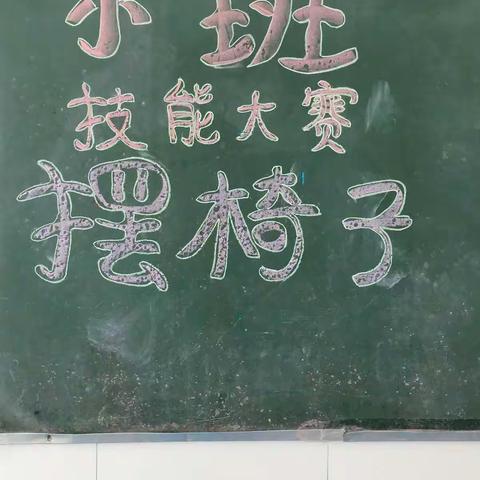 小班
技能大赛
摆椅子